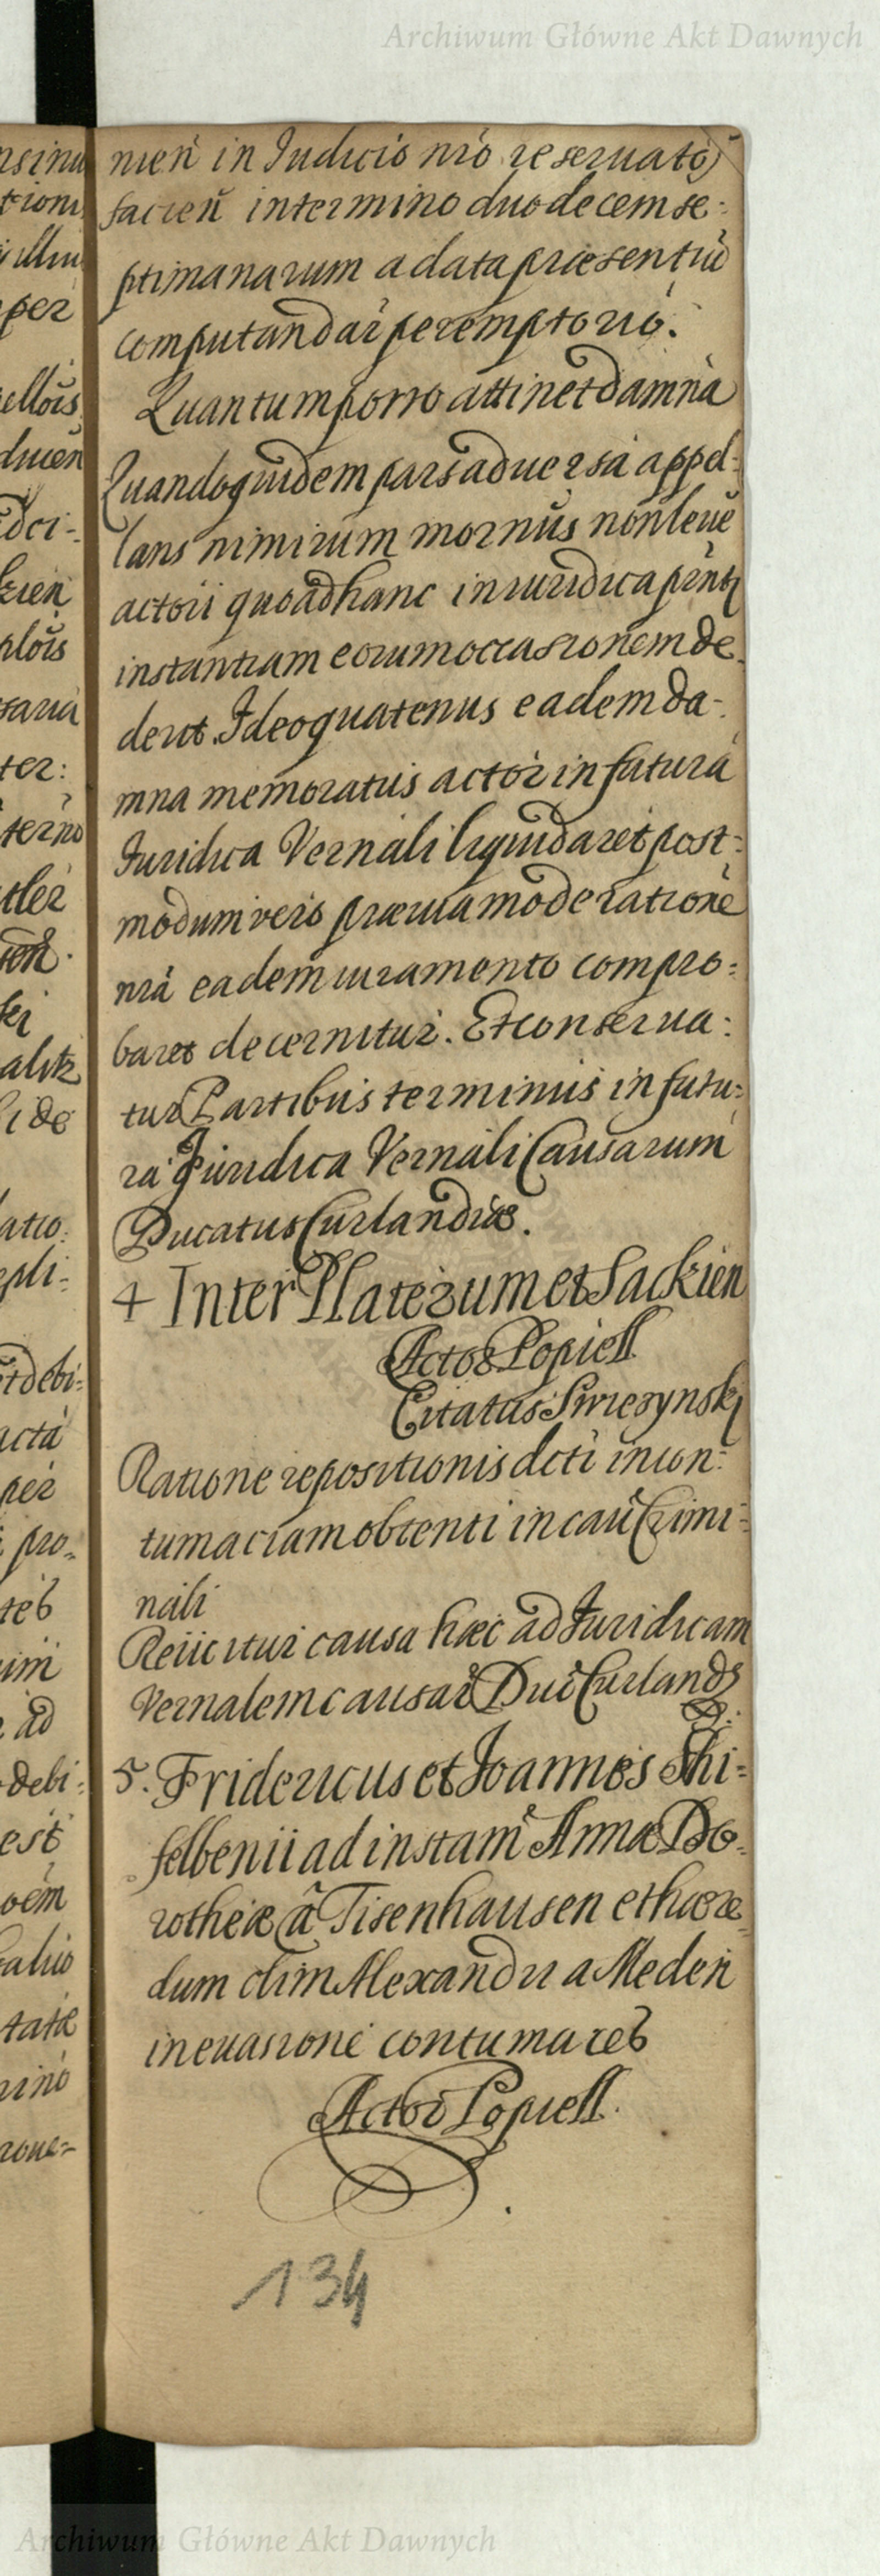 Archiwum Główne Akt Dawnych
nień in Iudicio nrõ reseruato)
facień intermino duodecem se:
ptimanarum a data præsentiũ
computandar̃ peremptorió.
Quantum porro attinet damna
Quandoquidem pars aduersa appel:
lans nimirum mornũs non leue
actori quoad hanc in iuridica pñti
instantiam eorum occasionem de
derit. Ideo quatenus eadem da-
mna memoratus actor in futura
Iuridica Vernali liquidaret post:
modum veró præuia moderatione
nrã eadem iuramento compro:
baret decernitur. Et conserua:
tur Partibus terminus in futu:
ra Iuridica Vernali Causarum
Ducatus Curlandiæ.
4 Inter Platerum et Sackien
Actor Popiell
Citatus Swiezynski
Ratione repositionis dcti in con:
tumaciam obtenti in caũ Crimi:
nali
Reiicitur causa hæc ad Iuridicam
Vernalem causar̃ Duc̃ Curland
5. Fridericus et Joannes Shi:
felbenii ad instam̃ Annæ Do-
rotheæ ã Tisenhausen et hære
dum olim Alexandri a Meden
in euasione contumaces
Actor Popiell.
134
Archiwum Główne Akt Dawnych